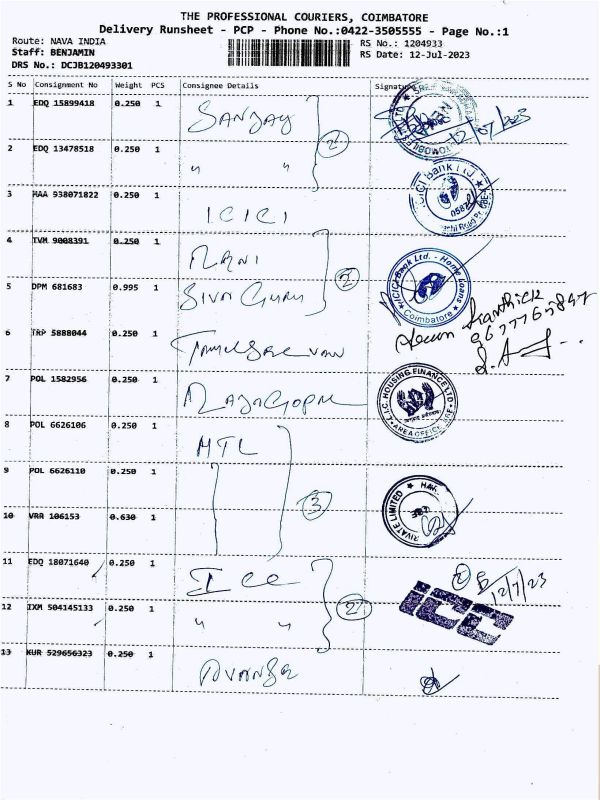 THE PROFESSIONAL COURIERS, COIMBATORE
Delivery Runsheet - PCP - Phone No.:0422-3505555 - Page No.:1
Route: NAVA INDIA RS No.: 1204933
Staff: BENJAMIN RS Date: 12-Jul-2023
DRS No.: DCJB120493301
S No Consignment No Weight PCS Consignee Details Signature
1 EDQ 15899418 0.250 1 SANJAY 12/07/2023
2 EDQ 13478518 0.250 1 " " 2
3 HAA 938071822 0.250 1 ICICI
ICICI Bank Ltd
4 TVM 9008391 0.250 1 MANI
5 DPM 681683 0.995 1 SIVA GURU 2
ICICI Bank Ltd. - Home Loans
Coimbatore
6 TRP 5888044 0.250 1
7 POL 1582956 0.250 1 RAJAGOPAL
L.I.C. HOUSING FINANCE LTD
AREA OFFICE
8 POL 6626106 0.250 1 MTL
9 POL 6626110 0.250 1
10 VRR 106153 0.630 1 3
PRIVATE LIMITED
11 EDQ 18071640 0.250 1 ICC 2 12/7/23
12 IXM 504145133 0.250 1 " " 2
ICC
13 KUR 529656323 0.250 1